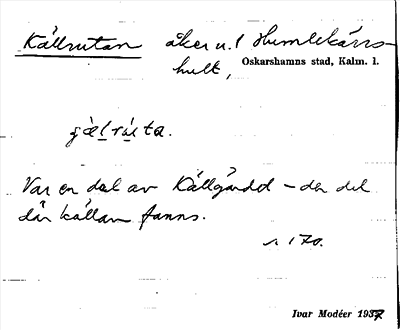 Källrutan åker u. l Humlekärrs-
hult, Oskarshamns stad, Kalm. l.
Var en del av Källgärdet – den del
där källan fanns.
s. 170.
Ivar Modéer 1937